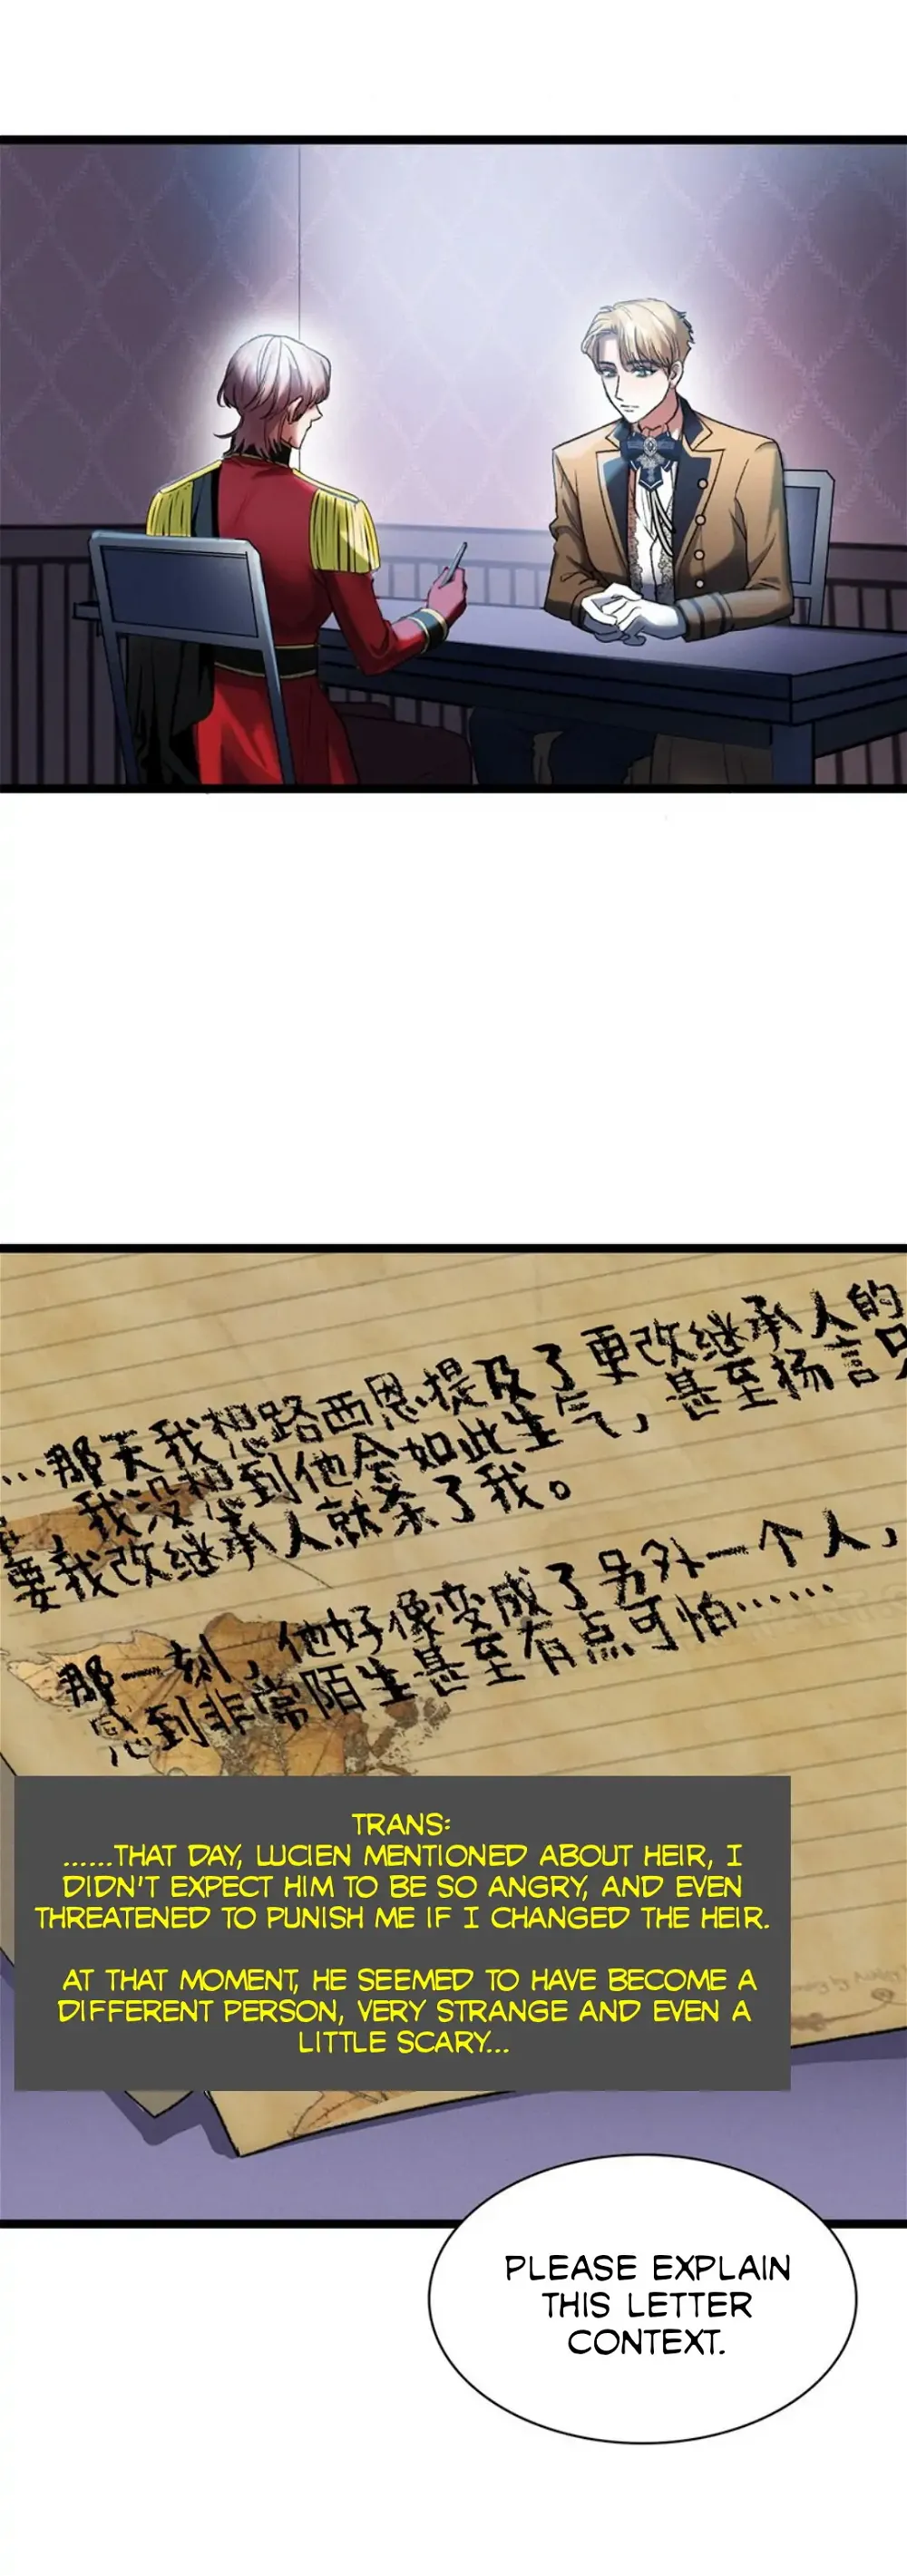 ...那天我想路西恩提及了更改继承人的
,我没想到他会如此生气,甚至扬言只
要我改继承人就杀了我。
那一刻,他好像变成了另外一个人,
感到非常陌生甚至有点可怕……
TRANS:
......THAT DAY, LUCIEN MENTIONED ABOUT HEIR, I
DIDN'T EXPECT HIM TO BE SO ANGRY, AND EVEN
THREATENED TO PUNISH ME IF I CHANGED THE HEIR.
AT THAT MOMENT, HE SEEMED TO HAVE BECOME A
DIFFERENT PERSON, VERY STRANGE AND EVEN A
LITTLE SCARY...
PLEASE EXPLAIN
THIS LETTER
CONTEXT.